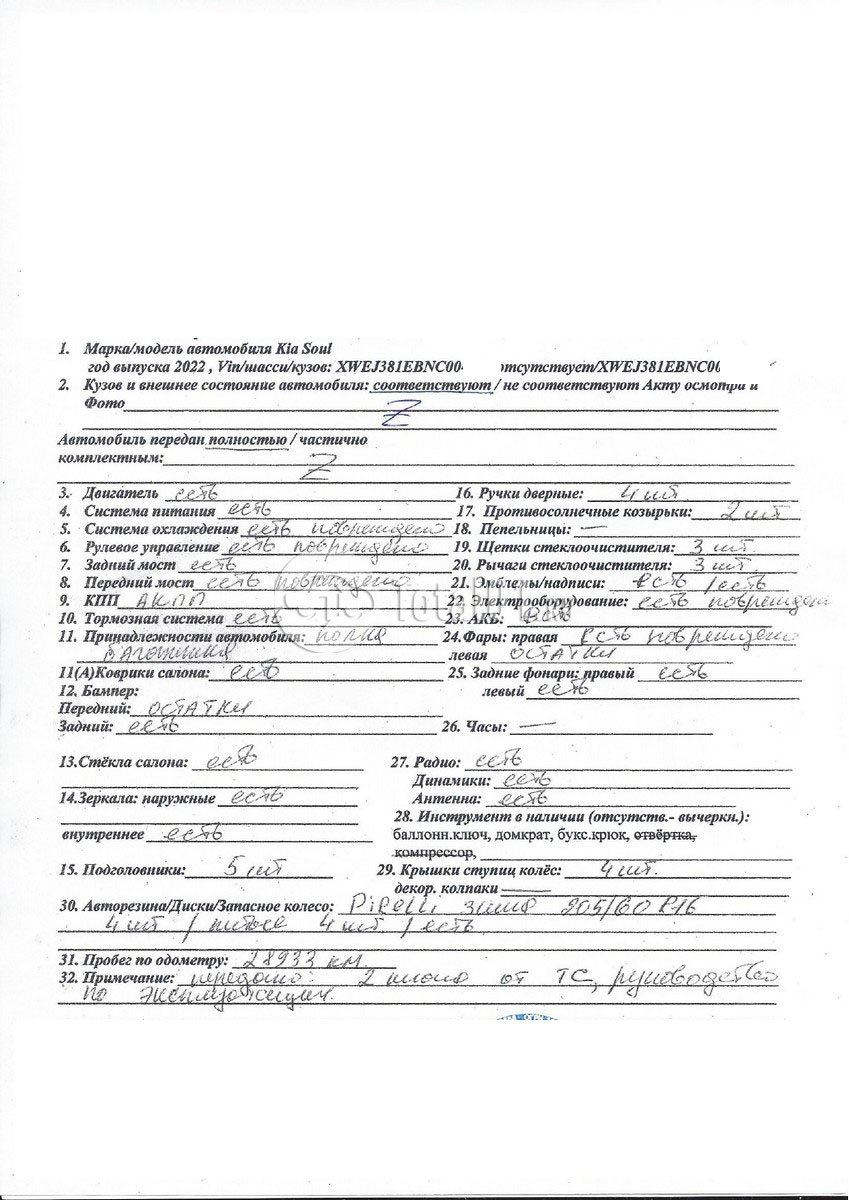 1. Марка/модель автомобиля Kia Soul
год выпуска 2022 , Vin/шасси/кузов: XWEJ381EBNC00 отсутствует/XWEJ381EBNC00
2. Кузов и внешнее состояние автомобиля: соответствуют / не соответствуют Акту осмотра и
Фото
Z
Автомобиль передан полностью / частично
комплектным:
Z
3. Двигатель есть
4. Система питания есть
5. Система охлаждения есть повреждено
6. Рулевое управление есть повреждено
7. Задний мост есть
8. Передний мост есть повреждено
9. КПП АКПП
10. Тормозная система есть
11. Принадлежности автомобиля: полка
багажника
11(А)Коврики салона: есть
12. Бампер:
Передний: остатки
Задний: есть
16. Ручки дверные: 4 шт
17. Противосолнечные козырьки: 2 шт
18. Пепельницы: —
19. Щетки стеклоочистителя: 3 шт.
20. Рычаги стеклоочистителя: 3 шт.
21. Эмблемы/надписи: есть / есть
22. Электрооборудование: есть поврежден
23. АКБ: есть
24.Фары: правая есть повреждено
левая остатки
25. Задние фонари: правый есть
левый есть
26. Часы: —
13.Стёкла салона: есть
14.Зеркала: наружные есть
внутреннее есть
15. Подголовники: 5 шт
27. Радио: есть
Динамики: есть
Антенна: есть
28. Инструмент в наличии (отсутств.- вычеркн.):
баллонн.ключ, домкрат, букс.крюк, отвёртка,
компрессор,
29. Крышки ступиц колёс: 4 шт.
декор. колпаки —
30. Авторезина/Диски/Запасное колесо: Pirelli зима 205/60 R16
4 шт / литые 4 шт / есть
31. Пробег по одометру: 28933 км.
32. Примечание: передано: 2 ключа от ТС, руководство
по эксплуатации.